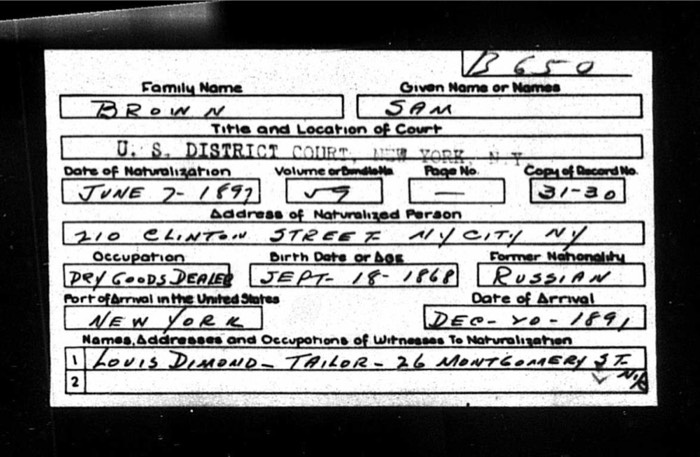 B 650
Family Name Given Name or Names
BROWN SAM
Title and Location of Court
U. S. DISTRICT COURT, NEW YORK, N.Y.
Date of Naturalization Volume or Bundle No. Page No. Copy of Record No.
JUNE 7- 1897 59 — 31-30
Address of Naturalized Person
210 CLINTON STREET NY CITY NY
Occupation Birth Date or Age Former Nationality
DRY GOODS DEALER SEPT- 18- 1868 RUSSIAN
Port of Arrival in the United States Date of Arrival
NEW YORK DEC- 20- 1891
Names, Addresses and Occupations of Witnesses To Naturalization
1 LOUIS DIMOND- TAILOR- 26 MONTGOMERY ST. N.Y.
2